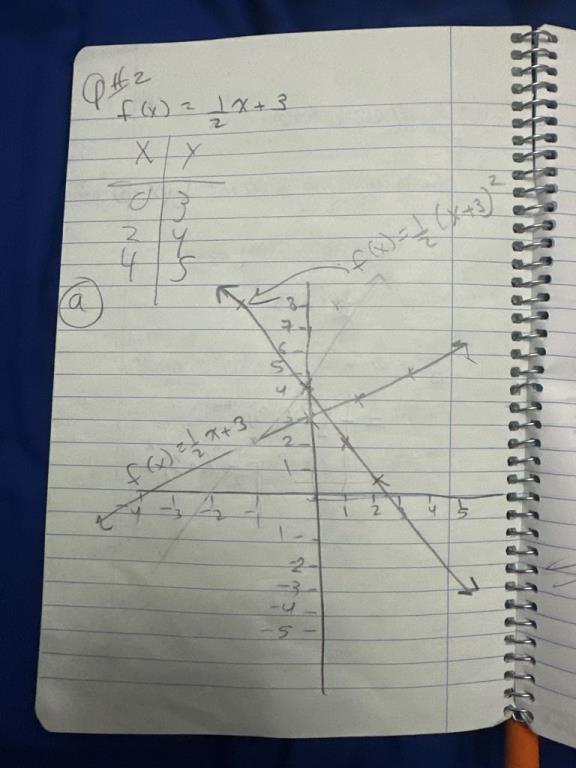 Q#2
f(x) = 1/2x+3
X Y
0 3
2 4
4 5
a
f(x)=1/2(x+3)²
8
7
6
5
4
3
2
1
f(x)=1/2x+3
-4 -3 -2 -1 1 2 3 4 5
1-
-2
-3
-4
-5